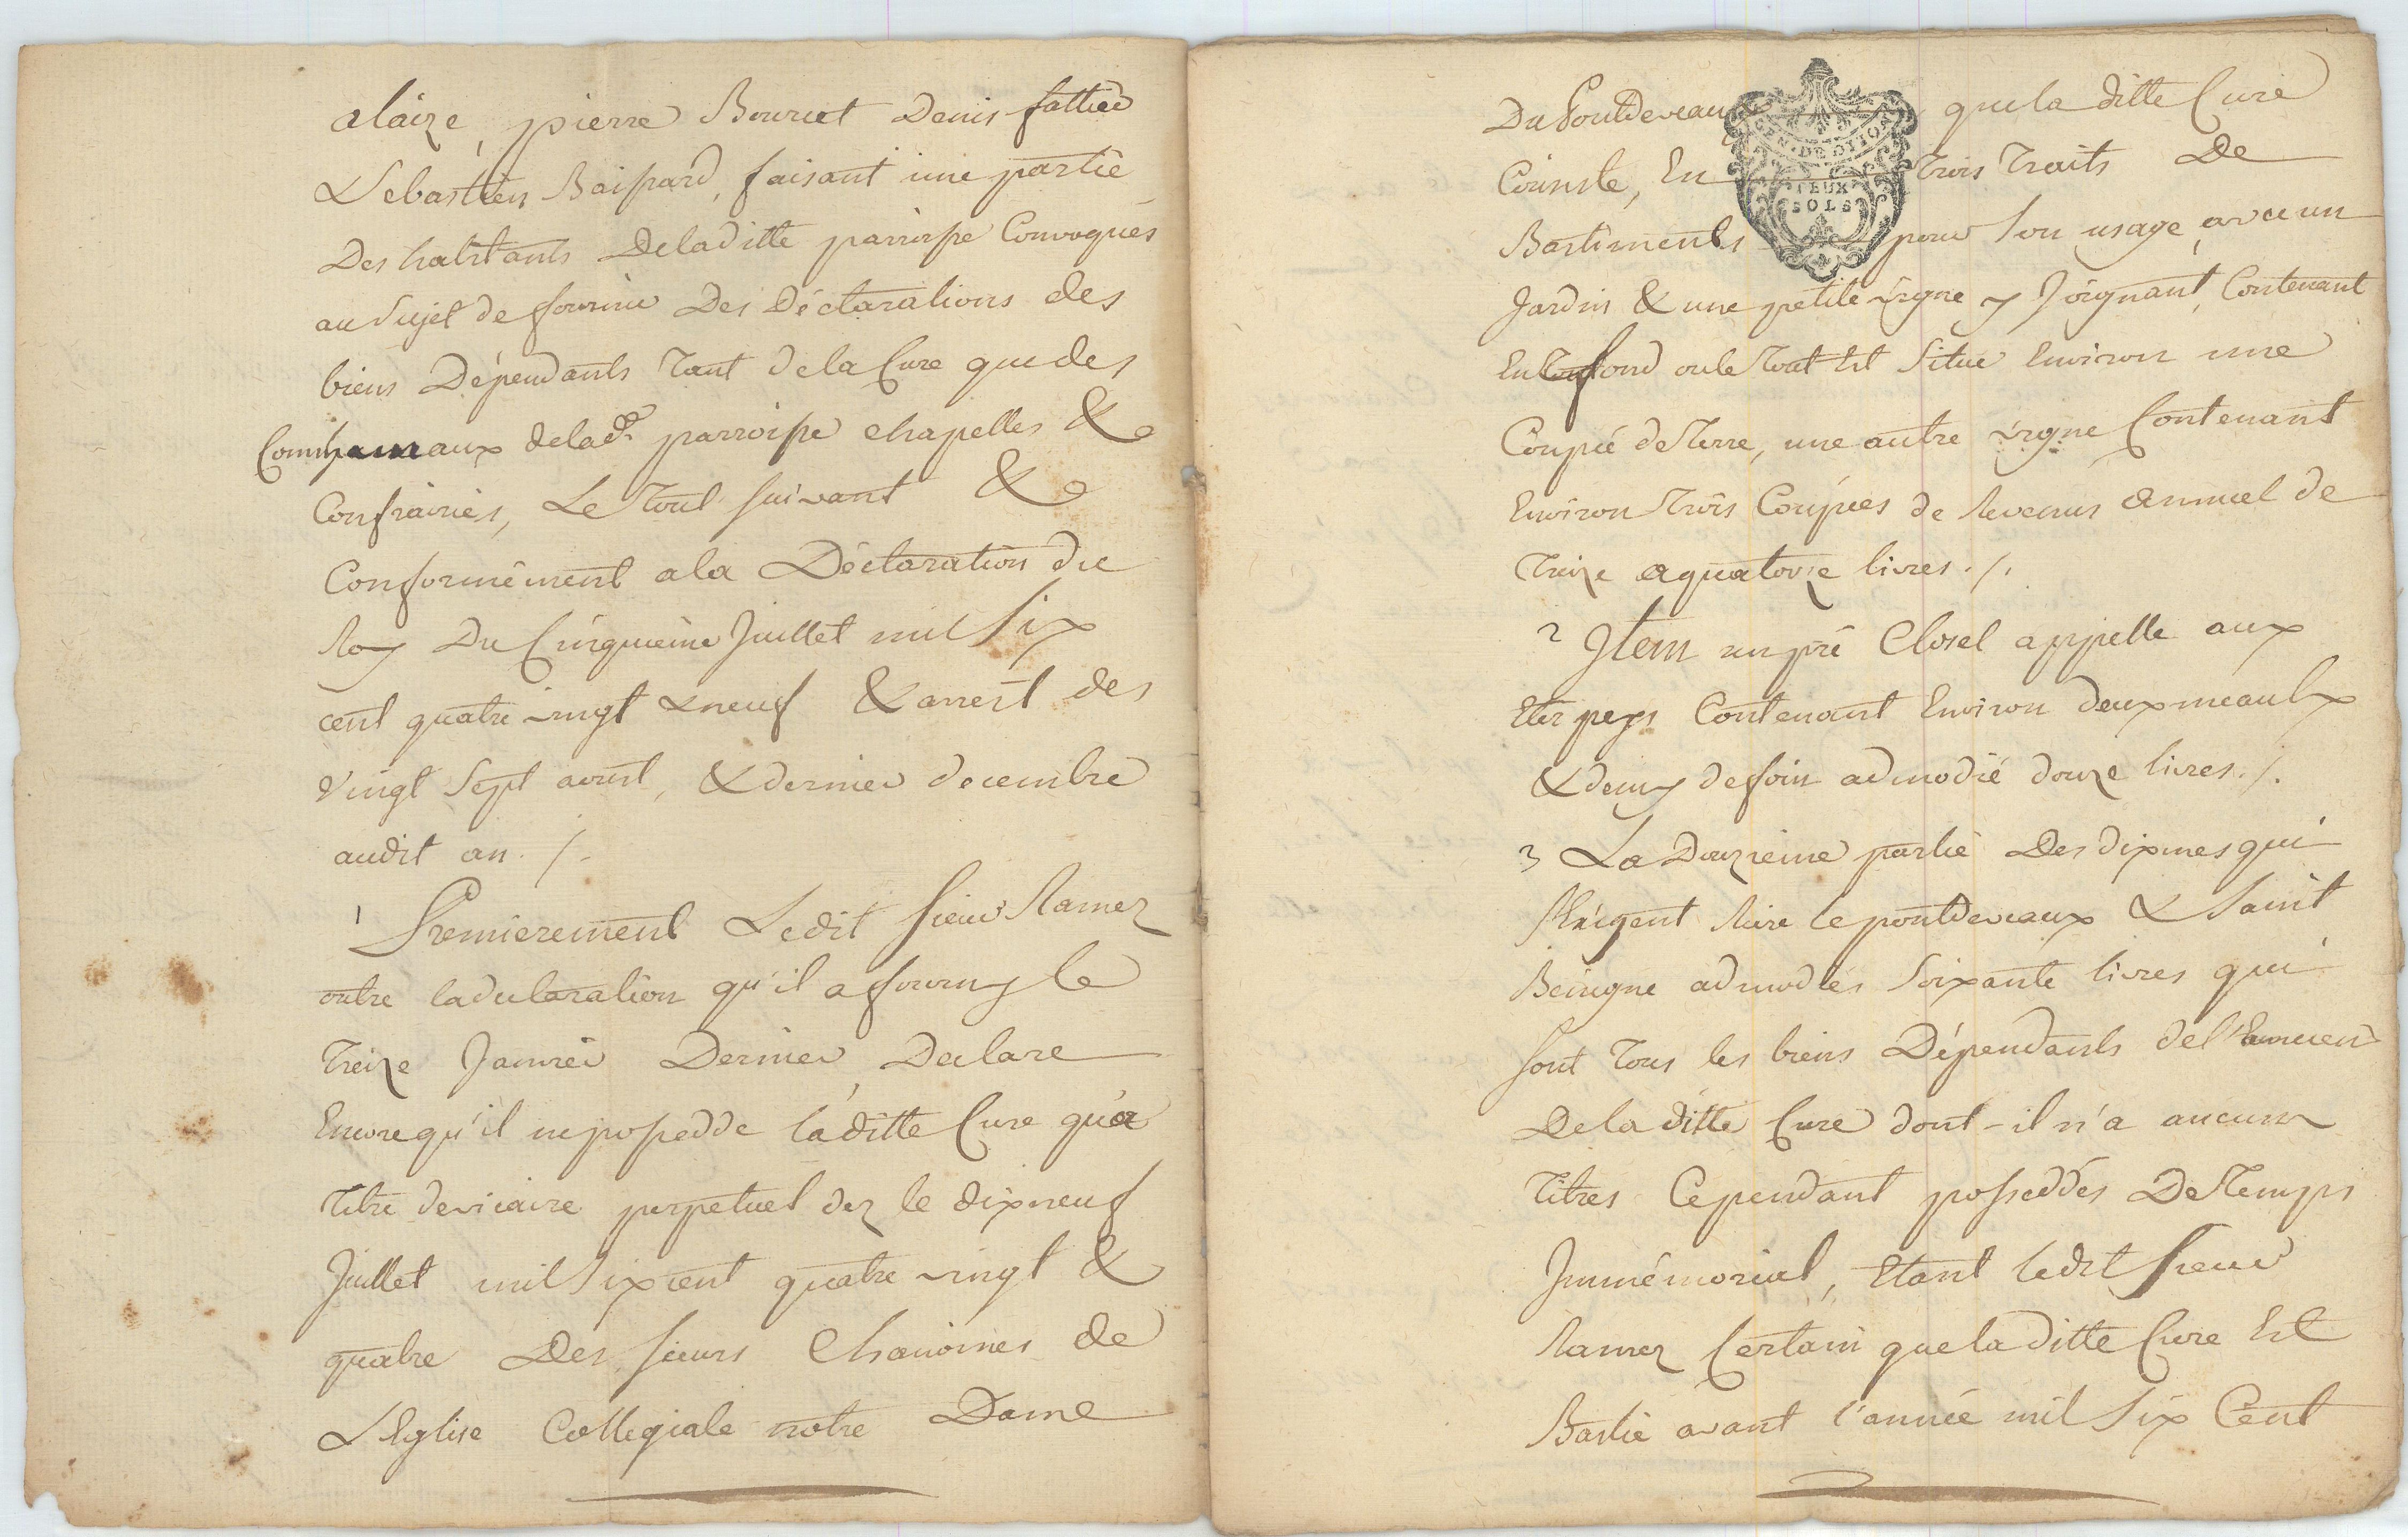 alaize, pierre Bourcet Denis fattier
Sebastien Baissard, faisant une partie
Des habitants Deladitte parroisse Convoqués
au Sujet de fournir Des Déclarations des
biens Dépendants Tant dela Cure que des
Communaux delad.e parroisse chapelles &
Confrairies, Le Tout suivant &
Conformément ala Déclaration du
Roy Du Cinquieme Juillet mil Six
cent quatre vingt & neuf & arrest des
Vingt Sept aoust, & dernier decembre
audit an. /.
1 Premierement Ledit sieur Ramez
outre la declaration qu'il a fourny le
Treize Janvier Dernier, Declare
Encore qu'il ne possedde laditte Cure qu'a
Titre devicaire perpetuel dez le dixneuf
Juillet mil Six cent quatre vingt &
quatre Des sieurs Chanoines de
L'Eglise Collegiale notre Dame
Du Pontdevaux que la ditte Cure
Coinste, En Trois Traits De
Bastiments pour Son usage, avec un
Jardin & une petite vigne y Joignant, Contenant
En fond ou le Tout Est Situé Environ une
Coupée de Terre, une autre vigne Contenant
Environ Trois Coupées de Revenus annuel de
Treize a quatorze livres. /.
2 Item un pré Closel appelle aux
Contenant Environ deux meaulx
& demy de foin admodié douze livres. /.
3 La Douzieme partie Des dixmes qui
Se Exigent Rière le pontdevaux & Saint
Beingne admodiés Soixante livres qui
sont Tous les biens Dépendants del'Ancien
Dela ditte Cure dont-il n'a aucuns
Titres Cependant posseddés De Temps
Immémorial, Etant ledit sieur
Ramez Certain que la ditte Cure Est
Bastie avant l'année mil Six Cent
GEN. DE DIJON
DEUX
SOLS